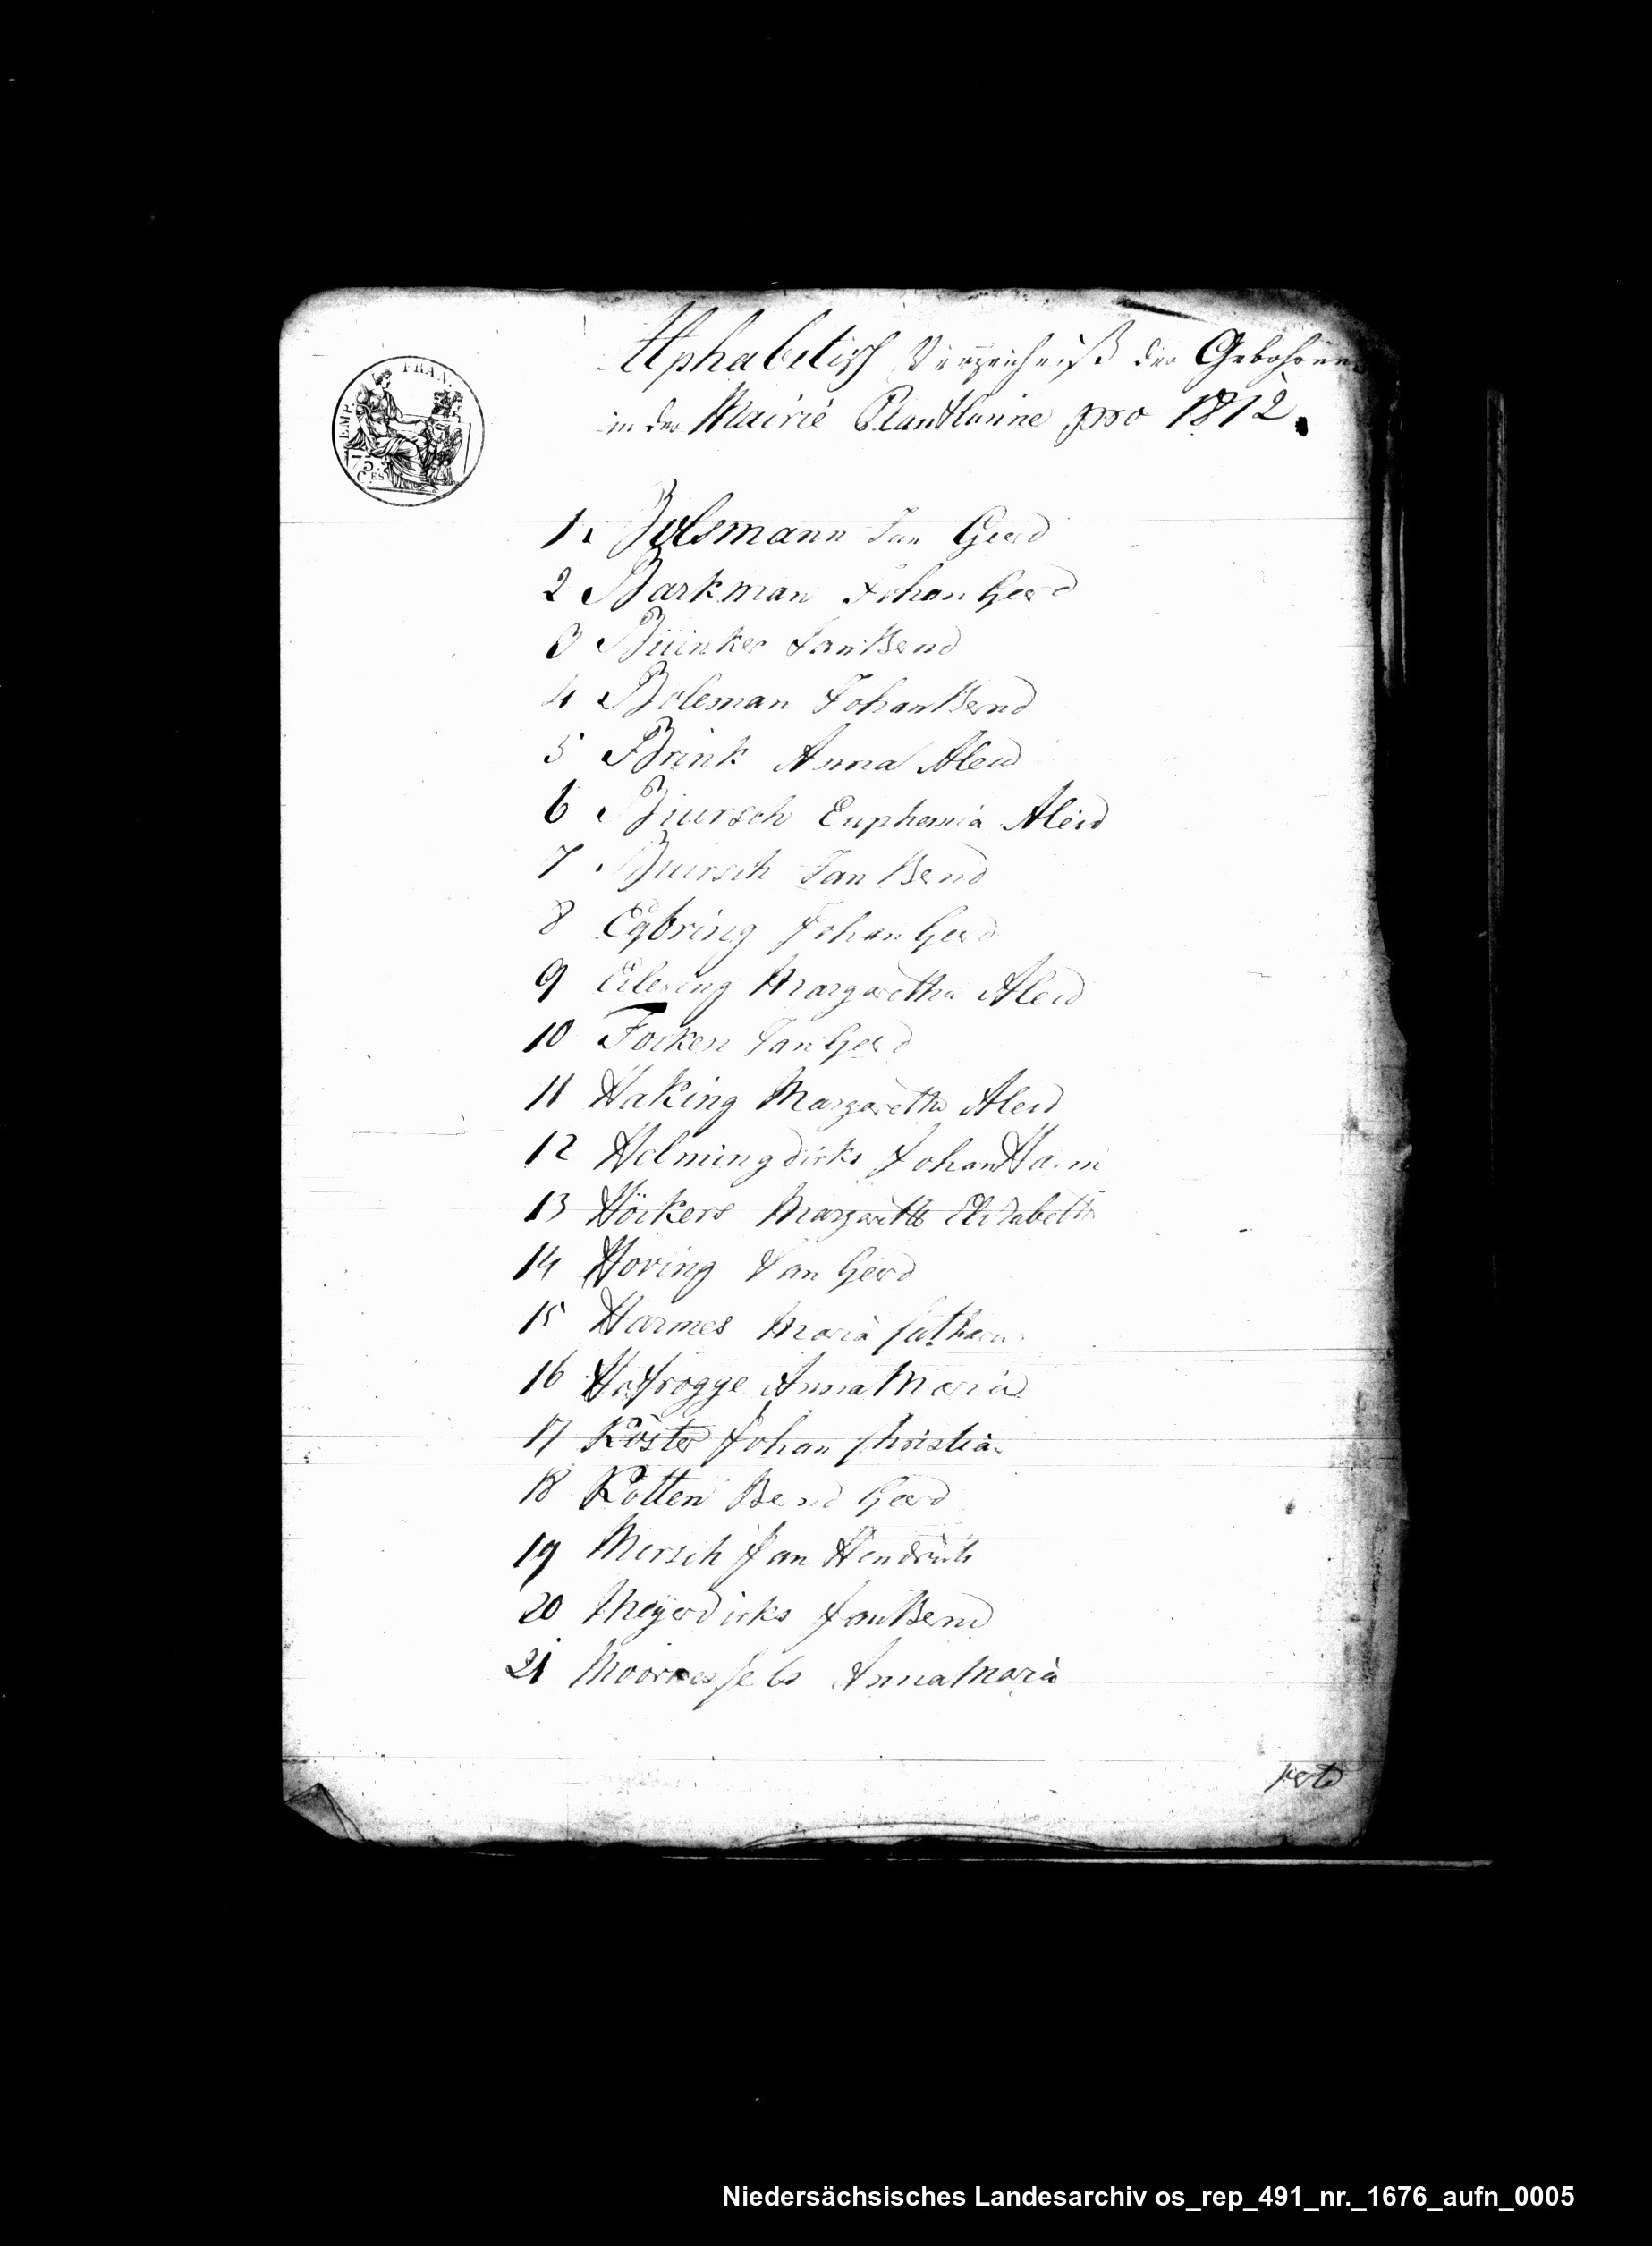 Alphabetisch Verzeichniß der Gebohrnen
in der Mairie Plantlünne pro 1812.
EMP. FRAN.
75.
CES
1. Bolsmann Jan Gerd
2 Barkman Johan Gerd
3 Büinker Jan Bernd
4 Bolsman Johan Bernd
5 Brink Anna Aleid
6 Büursch Euphemia Aleid
7 Buursch Jan Bernd
8 Egbring Johan Gerd
9 Eilering Margaretha Aleid
10 Focken Jan Gerd
11 Haking Margaretha Aleid
12 Helmingdirks Johan Harm
13 Höckers Margareth Elisabeth
14 Hoving Jan Gerd
15 Harmes Maria Catharn
16 Hofrogge Anna Maria
17 Köster Johan Christian
18 Kotten Bernd Gerd
19 Mersch Jan Hendrich
20 Meyerdirks Jan Bernd
21 Anna Maria
verte
Niedersächsisches Landesarchiv os_rep_491_nr._1676_aufn_0005